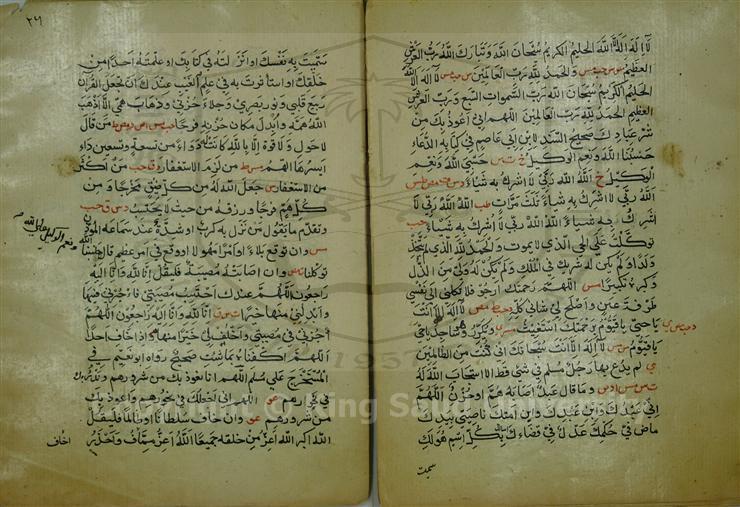 لا اله الا الله الحليم الكريم سبحان الله وتبارك الله رب العرش
العظيم والحمد لله رب العالمين لا اله الا الله
الحليم الكريم سبحان الله رب السموات السبع ورب العرش
العظيم الحمد لله رب العالمين اللهم اني اعوذ بك من
شر عبادك صحيح السند لابن ابي عاصم في كتابه الدعاء
حسبنا الله ونعم الوكيل خ ت س حسبي الله ونعم
الوكيل خ الله الله ربي لا اشرك به شيئا
الله ربي لا اشرك به شيئا ثلث مرات طب الله الله ربي لا
اشرك به شيئا الله الله ربي لا اشرك به شيئا حب
توكلت على الحي الذي لا يموت والحمد لله الذي لم يتخذ
ولدا ولم يكن له شريك في الملك ولم يكن له ولي من الذل
وكبره تكبيرا اللهم رحمتك ارجو فلا تكلني الى نفسي
طرفة عين واصلح لي شاني كله لا اله الا انت
يا حي يا قيوم برحمتك استغيث ويكرر وهو ساجد يا حي
يا قيوم لا اله الا انت سبحانك اني كنت من الظالمين
لم يدع بها رجل مسلم في شئ قط الا استجاب الله له
وما قال عبد اصابه هم او حزن اللهم
اني عبدك وابن عبدك وابن امتك ناصيتي بيدك
ماض في حكمك عدل في قضاؤك اسالك بكل اسم هو لك
سميت
٢٦
سميت به نفسك او انزلته في كتابك او علمته احدا من
خلقك او استاثرت به في علم الغيب عندك ان تجعل القرآن
ربيع قلبي ونور بصري وجلاء حزني وذهاب همي الا اذهب
الله همه وابدل مكان حزنه فرحا من قال
لا حول ولا قوة الا بالله كانت له دواء من تسعة وتسعين داء
ايسرها الهم من لزم الاستغفار من اكثر
من الاستغفار جعل الله له من كل ضيق مخرجا ومن
كل هم فرجا ورزقه من حيث لا يحتسب
وتقدم ما يقول من نزل به كرب او شدة عند سماعه المؤذن
وان توقع بلاء او امرا مهولا او وقع في امر عظيم قال حسبنا الله
ونعم الوكيل على الله
توكلنا وان اصابته مصيبة فليقل انا لله وانا اليه
راجعون اللهم عندك احتسب مصيبتي فاجرني فيها
وابدلني منها خيرا انا لله وانا اليه راجعون اللهم
اجرني في مصيبتي واخلف لي خيرا منها واذا خاف احدا
اللهم اكفناه بما شئت صحيح رواه ابو نعيم في
المستخرج على مسلم اللهم انا نعوذ بك من شرورهم وندرأ بك
في نحورهم عو اللهم اني اجعلك في نحورهم واعوذ بك
من شرورهم عو وان خاف سلطانا او ظالما فليقل
الله اكبر الله اعز من خلقه جميعا الله اعز مما اخاف واحذر
اخاف